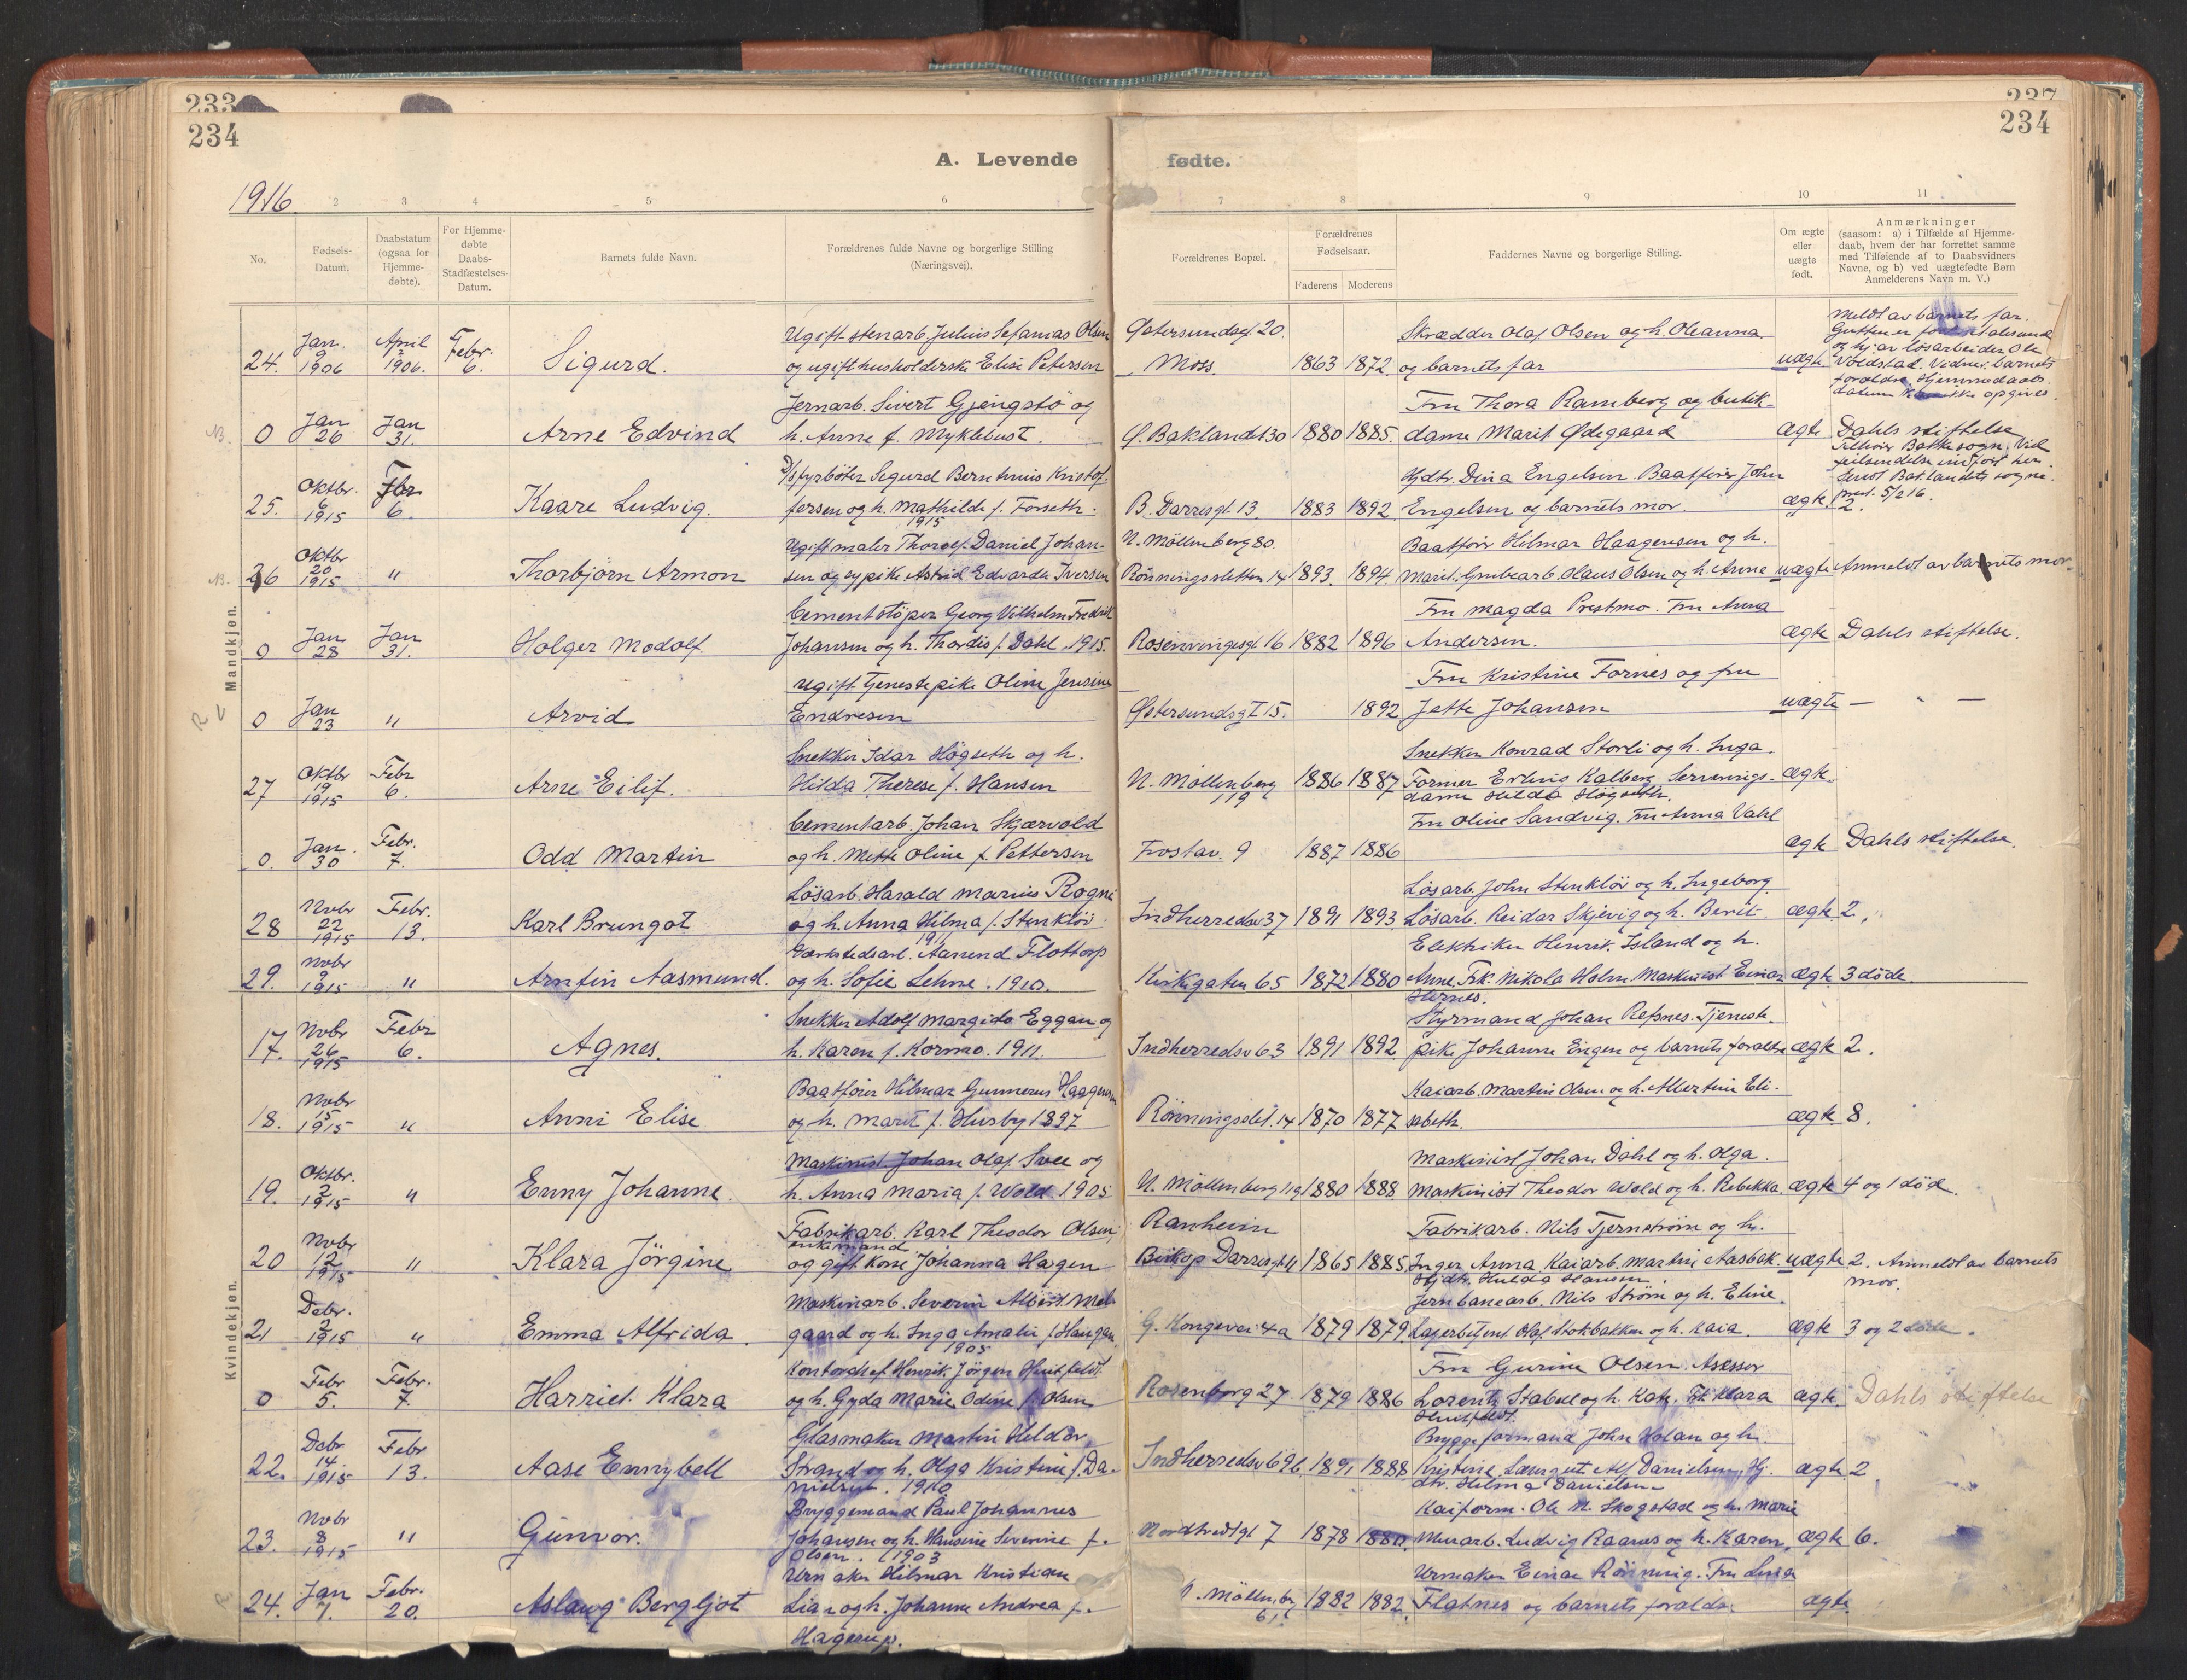 233
237
234
234
A. Levende fødte.
1916
2 3 4 5 6 7 8 9 10 11
No.
Fødsels-
Datum.
Daabsdatum
(ogsaa for
Hjemme-
døbte).
For Hjemme-
døbte
Daabs-
Stadfæstelses-
Datum.
Barnets fulde Navn.
Forældrenes fulde Navne og borgerlige Stilling
(Næringsvej).
Forældrenes Bopæl.
Forældrenes
Fødselsaar.
Faderens Moderens
Faddernes Navne og borgerlige Stilling.
Om ægte
eller
uægte
født.
Anmærkninger
(saasom: a) i Tilfælde af Hjemme-
daab, hvem der har forrettet samme
med Tilføiende af to Daabsvidners
Navne, og b) ved uægtefødte Børn
Anmelderens Navn m. V.)
Mandkjøn.
24. Jan. 9 1906 April 1906. Febr. 6. Sigurd.
Ugift stenarb. Julius Sefanias Olsen
og ugift husholderske Elise Petersen
Østersundsgt 20.
Moss. 1863 1872
Skrædder Olaf Olsen og h. Oleanna
og barnets far uægte
Meldt av barnets far.
og hj. av løsarbeider Ole
Voldstad. Vidner: barnets
forældre. Hjemmedaabs-
datum kan ikke opgives.
NB. 0 Jan 26 Jan 31. Arne Edvind
Jernarb. Sivert Gjengstø og
h. Anne f. Myklebust.
Ø. Baklandet 30 1880 1885.
Fru Thora Ramberg og butik-
dame Marit Ødegaard ægte
Dahls stiftelse
Tilhører Bakke sogn. Ved
feilsendelse indført her.
Sendt Baklandets sogne-
prest. 5/2 16.
25. Oktbr. 6 1915 Fbr 6. Kaare Ludvig.
D/S fyrbøter Sigurd Berntinius Kristof-
fersen og h. Mathilde f. Forseth.
1915
B. Darresgt. 13. 1883 1892
Hjdtr. Dina Engelsen. Baatfører John
Engelsen og barnets mor. ægte. 2.
NB. 26 Oktbr 20 1915 " Thorbjørn Armon
Ugift maler Thorolf Daniel Johan-
sen og sypike Astrid Edvarda Iversen
N. Møllenberg 80.
Rønningsletten 14 1893. 1894
Baatfører Hilmar Haagensen og h.
Marit. Grubearb. Olaus Olsen og h. Anna uægte Anmeldt av barnets mor.
0 Jan 28 Jan 31. Holger Modolf.
Cementstøper Georg Vilhelm Fredrik
Johansen og h. Thordis f. Dahl. 1915.
Rosenvingesgt 16 1882 1896
Fru Magda Prestmo. Fru Anna
Andersen. ægte Dahls stiftelse.
0 Jan 23 " Arvid
Ugift Tjenestepike Oline Jensine
Endresen
Østersundsgt 15. 1892
Fru Kristine Fornes og fru
Jette Johansen uægte — " —
27 Oktbr 19 1915 Febr 6. Arne Eilif.
Snekker Idar Høgseth og h.
Hilda Therese f. Hansen
N. Møllenberg
119 1886 1887
Snekker Konrad Storli og h. Inga.
Former Erling Kalberg. Serverings-
dame Hilda Høgseth. ægte.
0. Jan. 30 Febr. 7. Odd Martin
Cementarb. Johan Skjærvold
og h. Mette Oline f. Pettersen
Frostav. 9 1887 1886
Fru Oline Sandvig. Fru Anna Vahl
ægte Dahls stiftelse.
28 Novbr 22 1915 Febr. 13. Karl Brungot
Løsarb. Harald Marius Rogne
og h. Anna Hilma f. Stenkløv
Indherredsv 37 1891 1893
Løsarb. John Stenkløv og h. Ingeborg.
Løsarb. Reidar Skjevig og h. Berit. ægte 2.
29. Novbr 9 1915 " Arnfin Aasmund.
Værkstedsarb. Aanund Flottorp
og h. Sofie Lehne. 1910.
Kirkegaten 65 1872 1880
Elektriker Henrik Island og h.
Anne. Frk. Nikola Holm. Maskinist Einar
Hernes. ægte 3 døde.
Kvindekjøn.
17. Novbr 26 1915 Febr 6. Agnes.
Snekker Adolf Margido Eggan og
h. Karen f. Kormo. 1911.
Indherredsv 63 1891 1892
Styrmand Johan Refsnes. Tjeneste-
pike Johanne Engen og barnets forældre ægte 2.
18. Novbr 15 1915 " Anni Elise
Baatfører Hilmar Gunnerus Haagensen
og h. Marit f. Husby 1897
Rønningslet. 14 1870 1877
Kaiarb. Martin Olsen og h. Albertine Eli-
sabeth. ægte 8.
19. Oktbr. 2 1915 " Enny Johanne.
Maskinist Johan Olaf Svee og
h. Anna Maria f. Wold 1905
N. Møllenberg 119 1880 1888
Maskinist Johan Dahl og h. Olga.
Maskinist Theodor Wold og h. Rebekka. ægte 4 og 1 død.
20 Novbr 12 1915 " Klara Jørgine
Fabrikarb. Karl Theodor Olsen,
enkemand
og gift kone Johanna Hagen
Ranheim
Biskop Darresgt 11 1865 1885
Fabrikarb. Nils Tjernstrøm og h.
Inger Anna. Kaiarb. Martin Aasbak.
Hjdtr. Hulda Hansen. uægte 2. Anmeldt av barnets
mor.
21 Debr. 2 1915 " Emma Alfrida.
Maskinarb. Severin Albert Mel-
gaard og h. Inga Amalie f. Haugan.
1905
G. Kongevei 4a 1879 1879.
Jernbanearb. Nils Strøm og h. Eline.
Lagerbetjent Olaf Stokbakken og h. Kaia. ægte 3 og 2 døde.
0 Febr 5. Febr. 7. Harriet Klara
Kontorchef Henrik Jørgen Huitfeldt
og h. Gyda Marie Odine f. Olsen
Rosenborg 27 1879 1886
Fru Gurine Olsen. Asessor
Lorentz Stabel og h. Kate. Frk Klara
Huitfeldt. ægte. Dahls stiftelse
22. Debr 14. 1915 Febr 13. Aase Ennybell
Glasmaker Martin Heldor
Strand og h. Olga Kristine f. Da-
nielsen. 1910.
Indherredsv 69b 1891 1888
Bryggeformand John Holan og h.
Kristine. Alf Danielsen. Hj.
dtr. Helma Danielsen ægte 2
23. Novbr 8 1915 " Gunvor.
Bryggemand Paul Johannes
Johansen og h. Hansine Severine f.
Olsen. 1903
Nordtvedtgt 7 1878 1880.
Kaiform. Ole N. Skogstad og h. Marie
Murarb. Ludvig Raanes og h. Karen. ægte 6.
24. Jan 7. Febr. 20. Aslaug Bergljot
Urmaker Hilmar Kristian
Lian og h. Johanne Andrea f.
Hagerup.
N. Møllenbg
61 1882 1882.
Urmaker Einar Rønning. Fru Luisa
Flatnes og barnets forældre ægte.